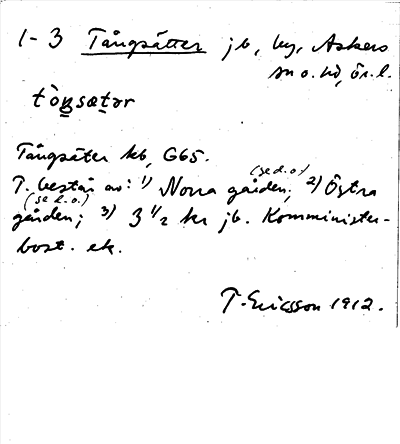 1-3 Tångsätter jb, by, Askers
sn o. hd, ör. l.
tòŋsætər
Tångsäter kb, G65.
(se d. o)
T. består av: 1) Norra gården; 2) Östra
(se d. o.)
gården; 3) 3 1/2 kr jb. Komminister-
bost. ek.
T. Ericsson 1912.